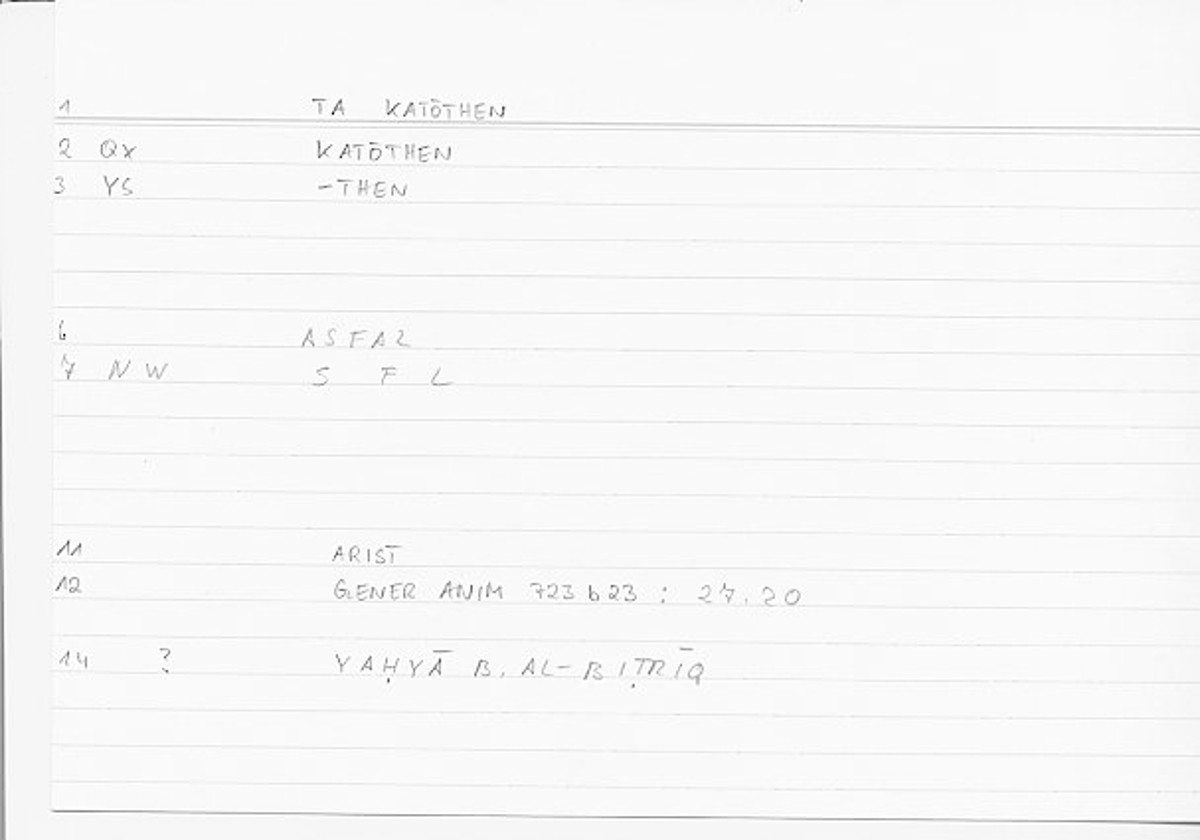 1 TA KATŌTHEN
2 QX KATŌTHEN
3 YS -THEN
6 ASFAL
7 NW S F L
11 ARIST
12 GENER ANIM 723 b 23 : 27.20
14 ? YAḤYĀ B. AL-BIṬRĪQ